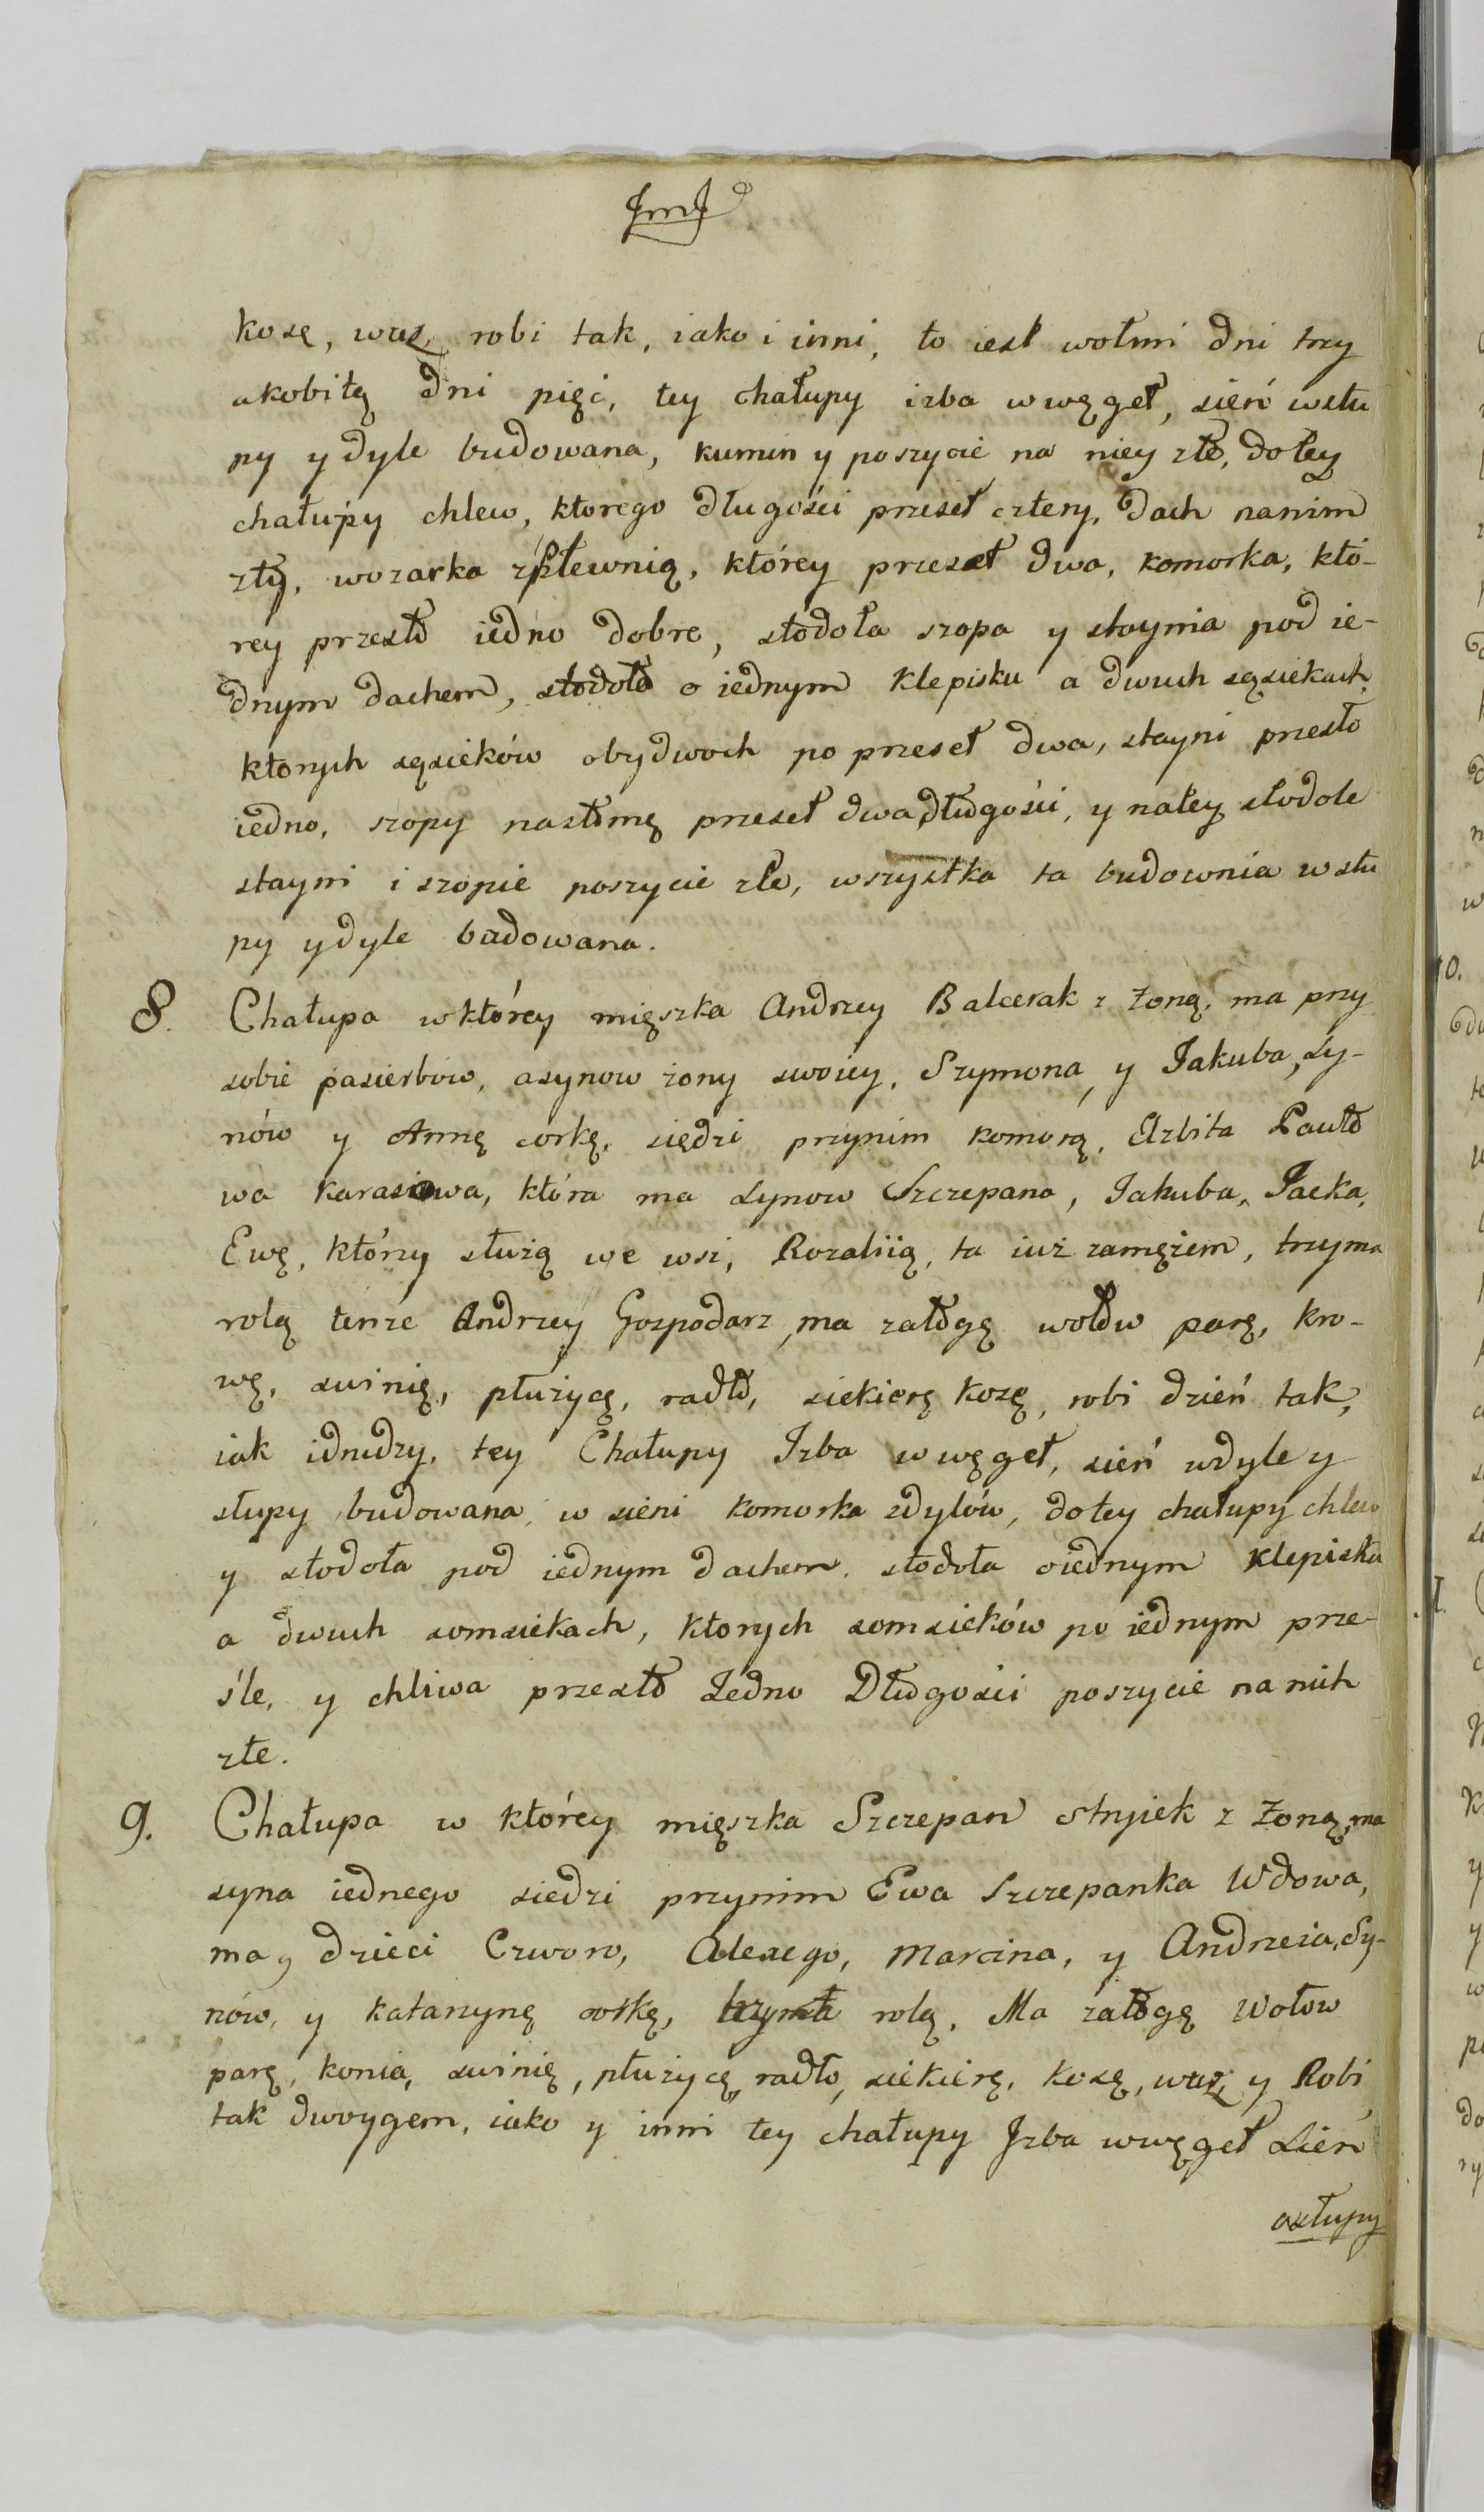 JmJ
kosę, wuz, robi tak, iako i inni, to iest wołmi dni trzy
akobiłą dni pięć, tey chałupy izba wwęgeł, sień wsłu
py y dyle budowana, kumin y poszycie na niey złe, dotey
chałupy chlew, ktorego długości przeseł cztery, dach nanim
zły, wozarka zplewnią, którey przeseł dwa, komorka, któ-
rey przesło iedno dobre, stodoła szopa y staynia pod ie-
dnym dachem, stodoła o iednym klepisku a dwuch sąsiekach,
ktorych sąsieków obydwoch po przeseł dwa, stayni przesło
iedno, szopy nasłomę przeseł dwa długości, y natey stodole
stayni i szopie poszycie złe, wszystka ta budownia wsłu
py ydyle budowana.
8. Chałupa wktórey mięszka Andrzey Balcerak z żoną, ma przy
sobie pasierbow, asynow żony swoiey, Szymona, y Jakuba, Sy-
nów y Annę corkę, siędzi przynim komorą, Elzbita Pawło
wa karasiowa, która ma Synow Szczepana, Jakuba, Jacka,
Ewę, którzy służą we wsi, Rozaliią, ta iuż zamężem, trzyma
rolą tenze Andrzey Gospodarz, ma załogę wołow parę, kro-
wę, swinię, płużycę, radło, siekierę kosę, robi dzień tak,
iak idrudzy, tey Chałupy Izba wwęgeł, sień wdyle y
słupy budowana, w sieni komorka zdylów, dotey chałupy chlew
y stodoła pod iednym dachem, stodoła oiednym klepisku
a dwuch somsiekach, ktorych somsieków po iednym prze-
śle, y chliwa przesło Jedno Długości poszycie na nich
złe.
9. Chałupa w którey mięszka Szczepan stryiek z żoną, ma
syna iednego siedzi przynim Ewa Szczepanka Wdowa,
ma, dzieci Czworo, Alexego, Marcina, y Andrzeia, Sy-
nów, y katarzynę corkę, trzyma rolą, Ma załogę Wołow
parę, konia, swinię, płużycę, radło, siekierę, kosę, wuz, y Robi
tak dwoygem, iako y inni tey chałupy Jzba wwęgeł Sień
wsłupy